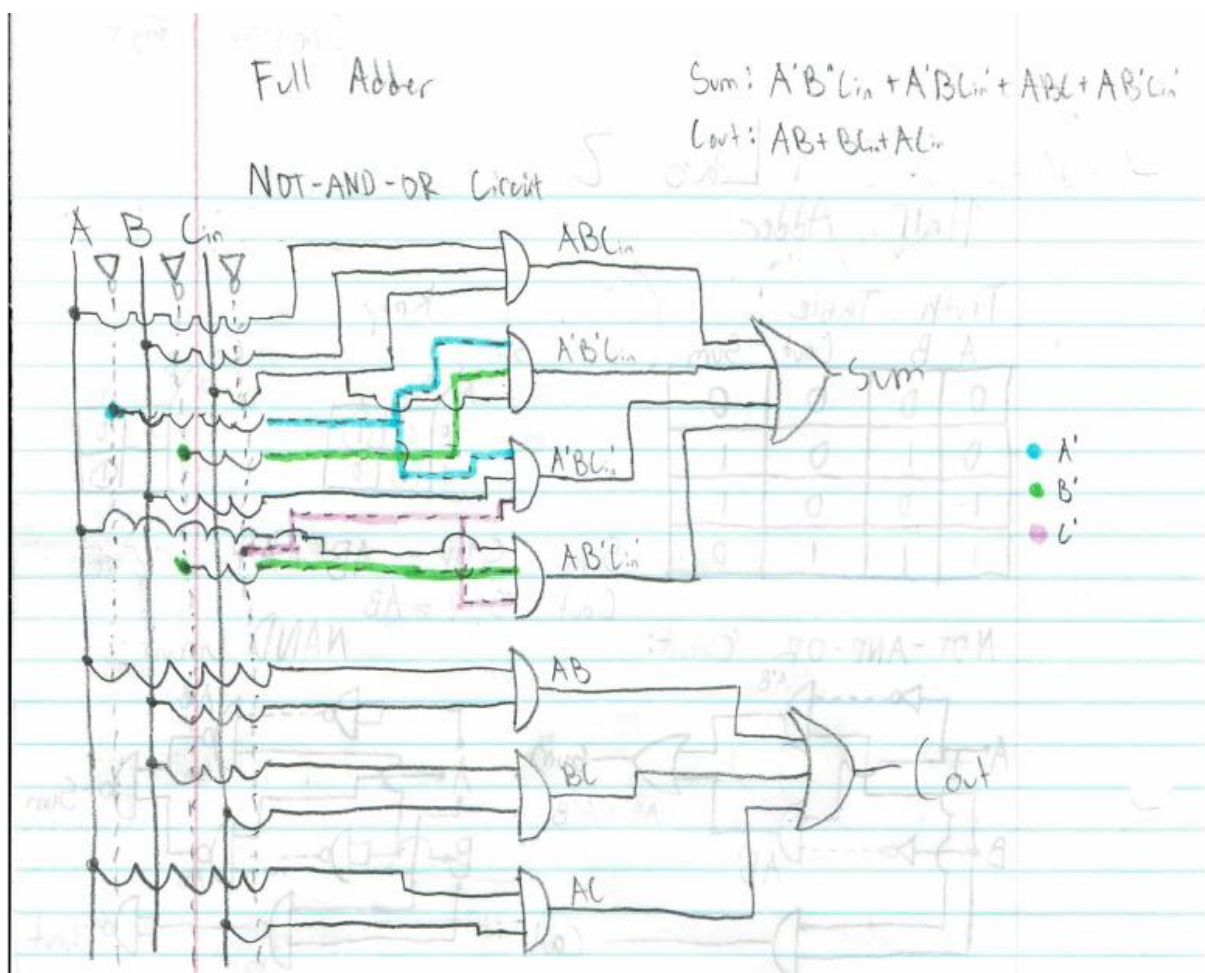 Full Adder
Sum: A'B'Cin + A'BCin' + ABC + AB'Cin'
Cout: AB + BCin + ACin
NOT-AND-OR Circuit
A B Cin
ABCin
A'B'Cin
Sum
A'BCin'
A'
B'
C'
AB'Cin'
AB
BC
Cout
AC